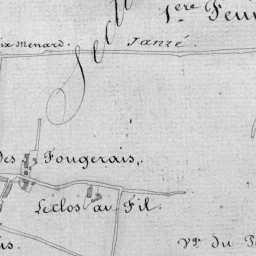 1ère Feui
ix Menard. Janzé
des Fougerais.
Leclos au Fil.
is. Vge du